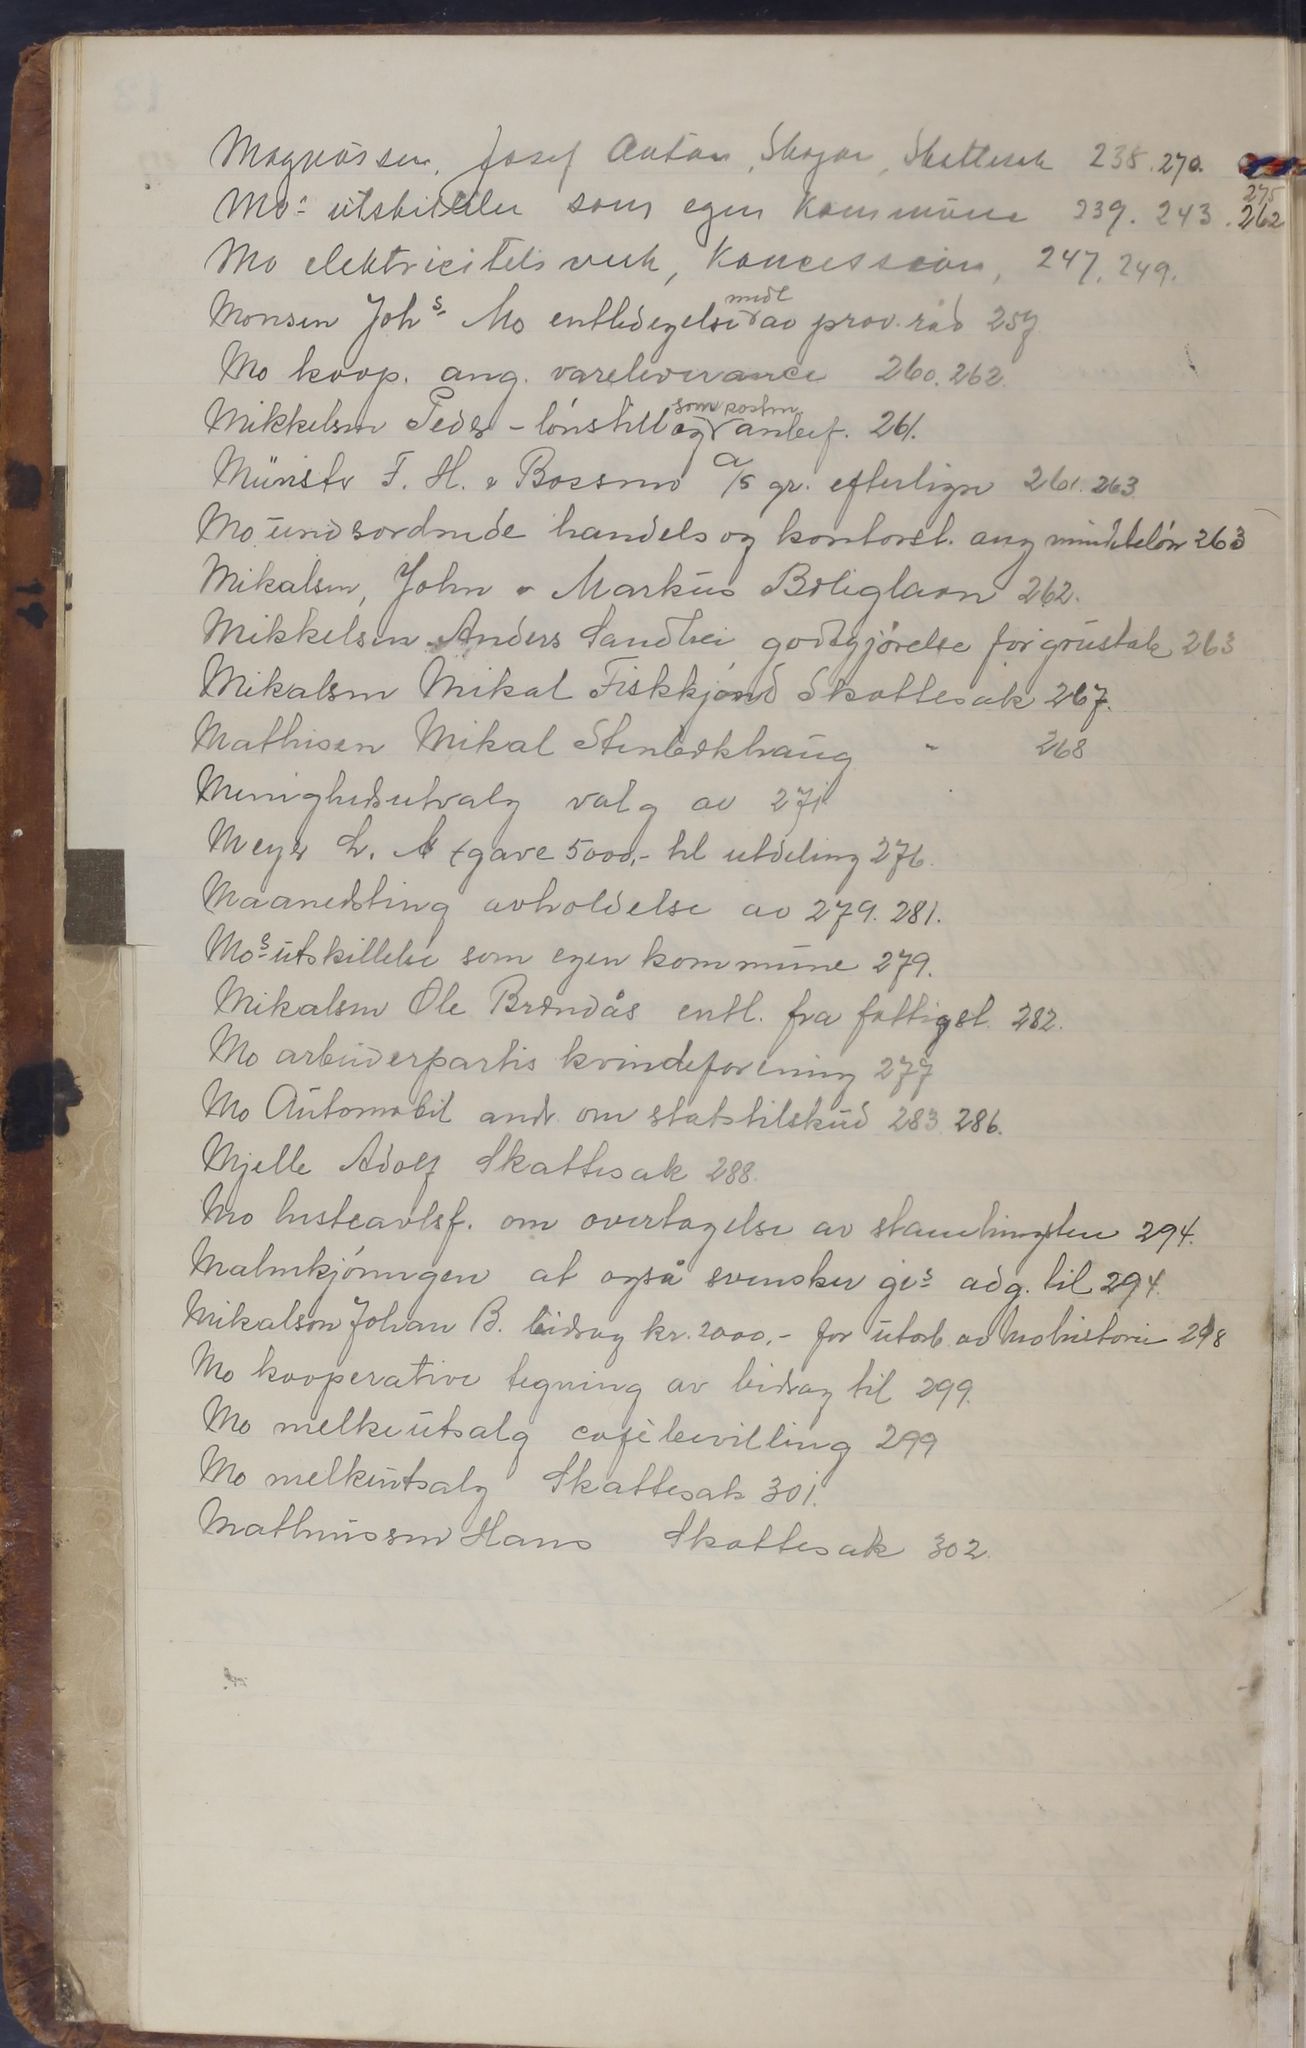 Magnussen, Josef Anton, Skogan, Skattesak 238. 270.
Mo's utskillelse som egen kommune 239. 243. 262 275
Mo elektricitetsverk, Koncession, 247. 249.
Monsen Johs. Mo entledigelse medl av prov. råd 257
Mo koop. ang. vareleverance 260. 262.
Mikkelsen Peder - lønstill og som postm. anbef. 261.
Münster F. H. & Bossmo A/S gr. efterlign 261. 263
Mo underordnede handels og kontorst. ang mindsteløn 263
Mikalsen, John & Markus Boliglaan 262.
Mikkelsen Anders Sandhei godtgjørelse for grustak 263
Mikalsen Mikal Fiskkjønd Skattesak 267.
Mathisen Mikal Stenbekhaug " 268
Menighedsutvalg valg av 271
Meyer L. A gave 5000,- til utdeling 276.
Maanedsting avholdelse av 279. 281.
Mo's utskillelse som egen kommune 279.
Mikalsen Ole Brendås entl. fra fattigst. 282.
Mo arbeiderpartis kvindeforening 277
Mo Automobil andr. om statstilskud 283. 286.
Mjelle Adolf Skattesak 288.
Mo hesteavlsf. om overtagelse av stamhingsten 294.
Malmkjøringen at også svensker gis adg. til 294.
Mikalson Johan B. bidrag kr. 2000,- for utarb. av Mo historie 298
Mo kooperative tegning av bidrag til 299.
Mo melkeutsalg cafébevilling 299
Mo melkeutsalg Skattesak 301.
Mathiussen Hans Skattesak 302.